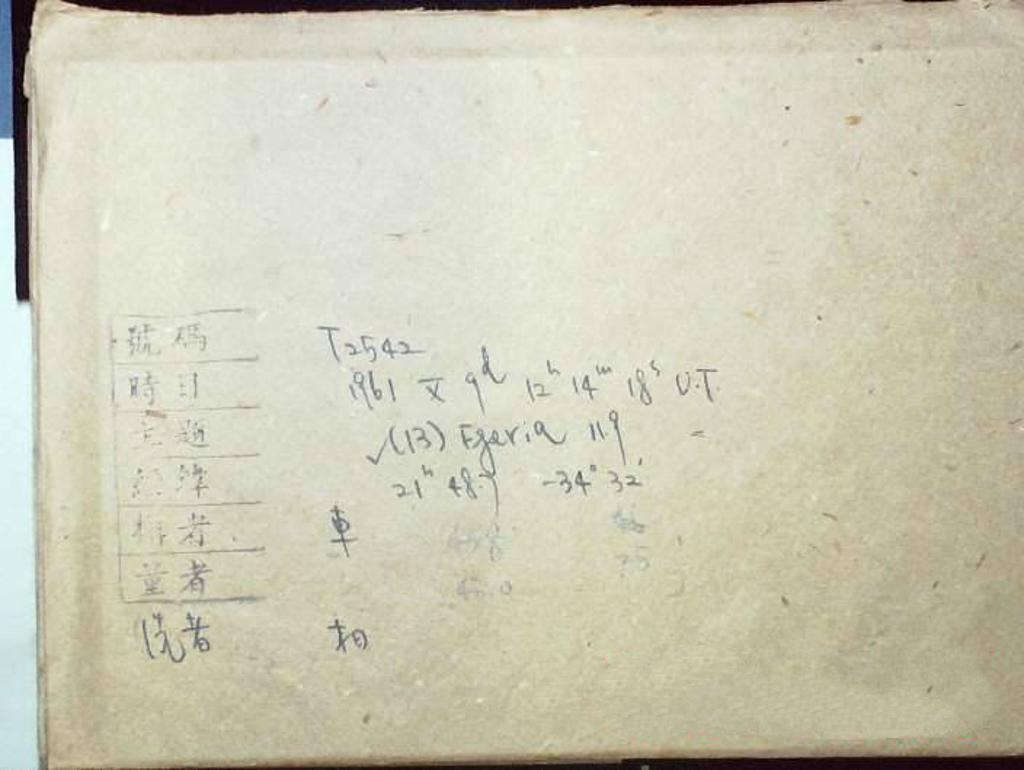 號碼 T2542
時日 1961 X 9d 12h 14m 18s U.T.
主題 √(13) Egeria 11.9
經緯 21h 48.7 -34° 32'
者 車
量者
洗者 相